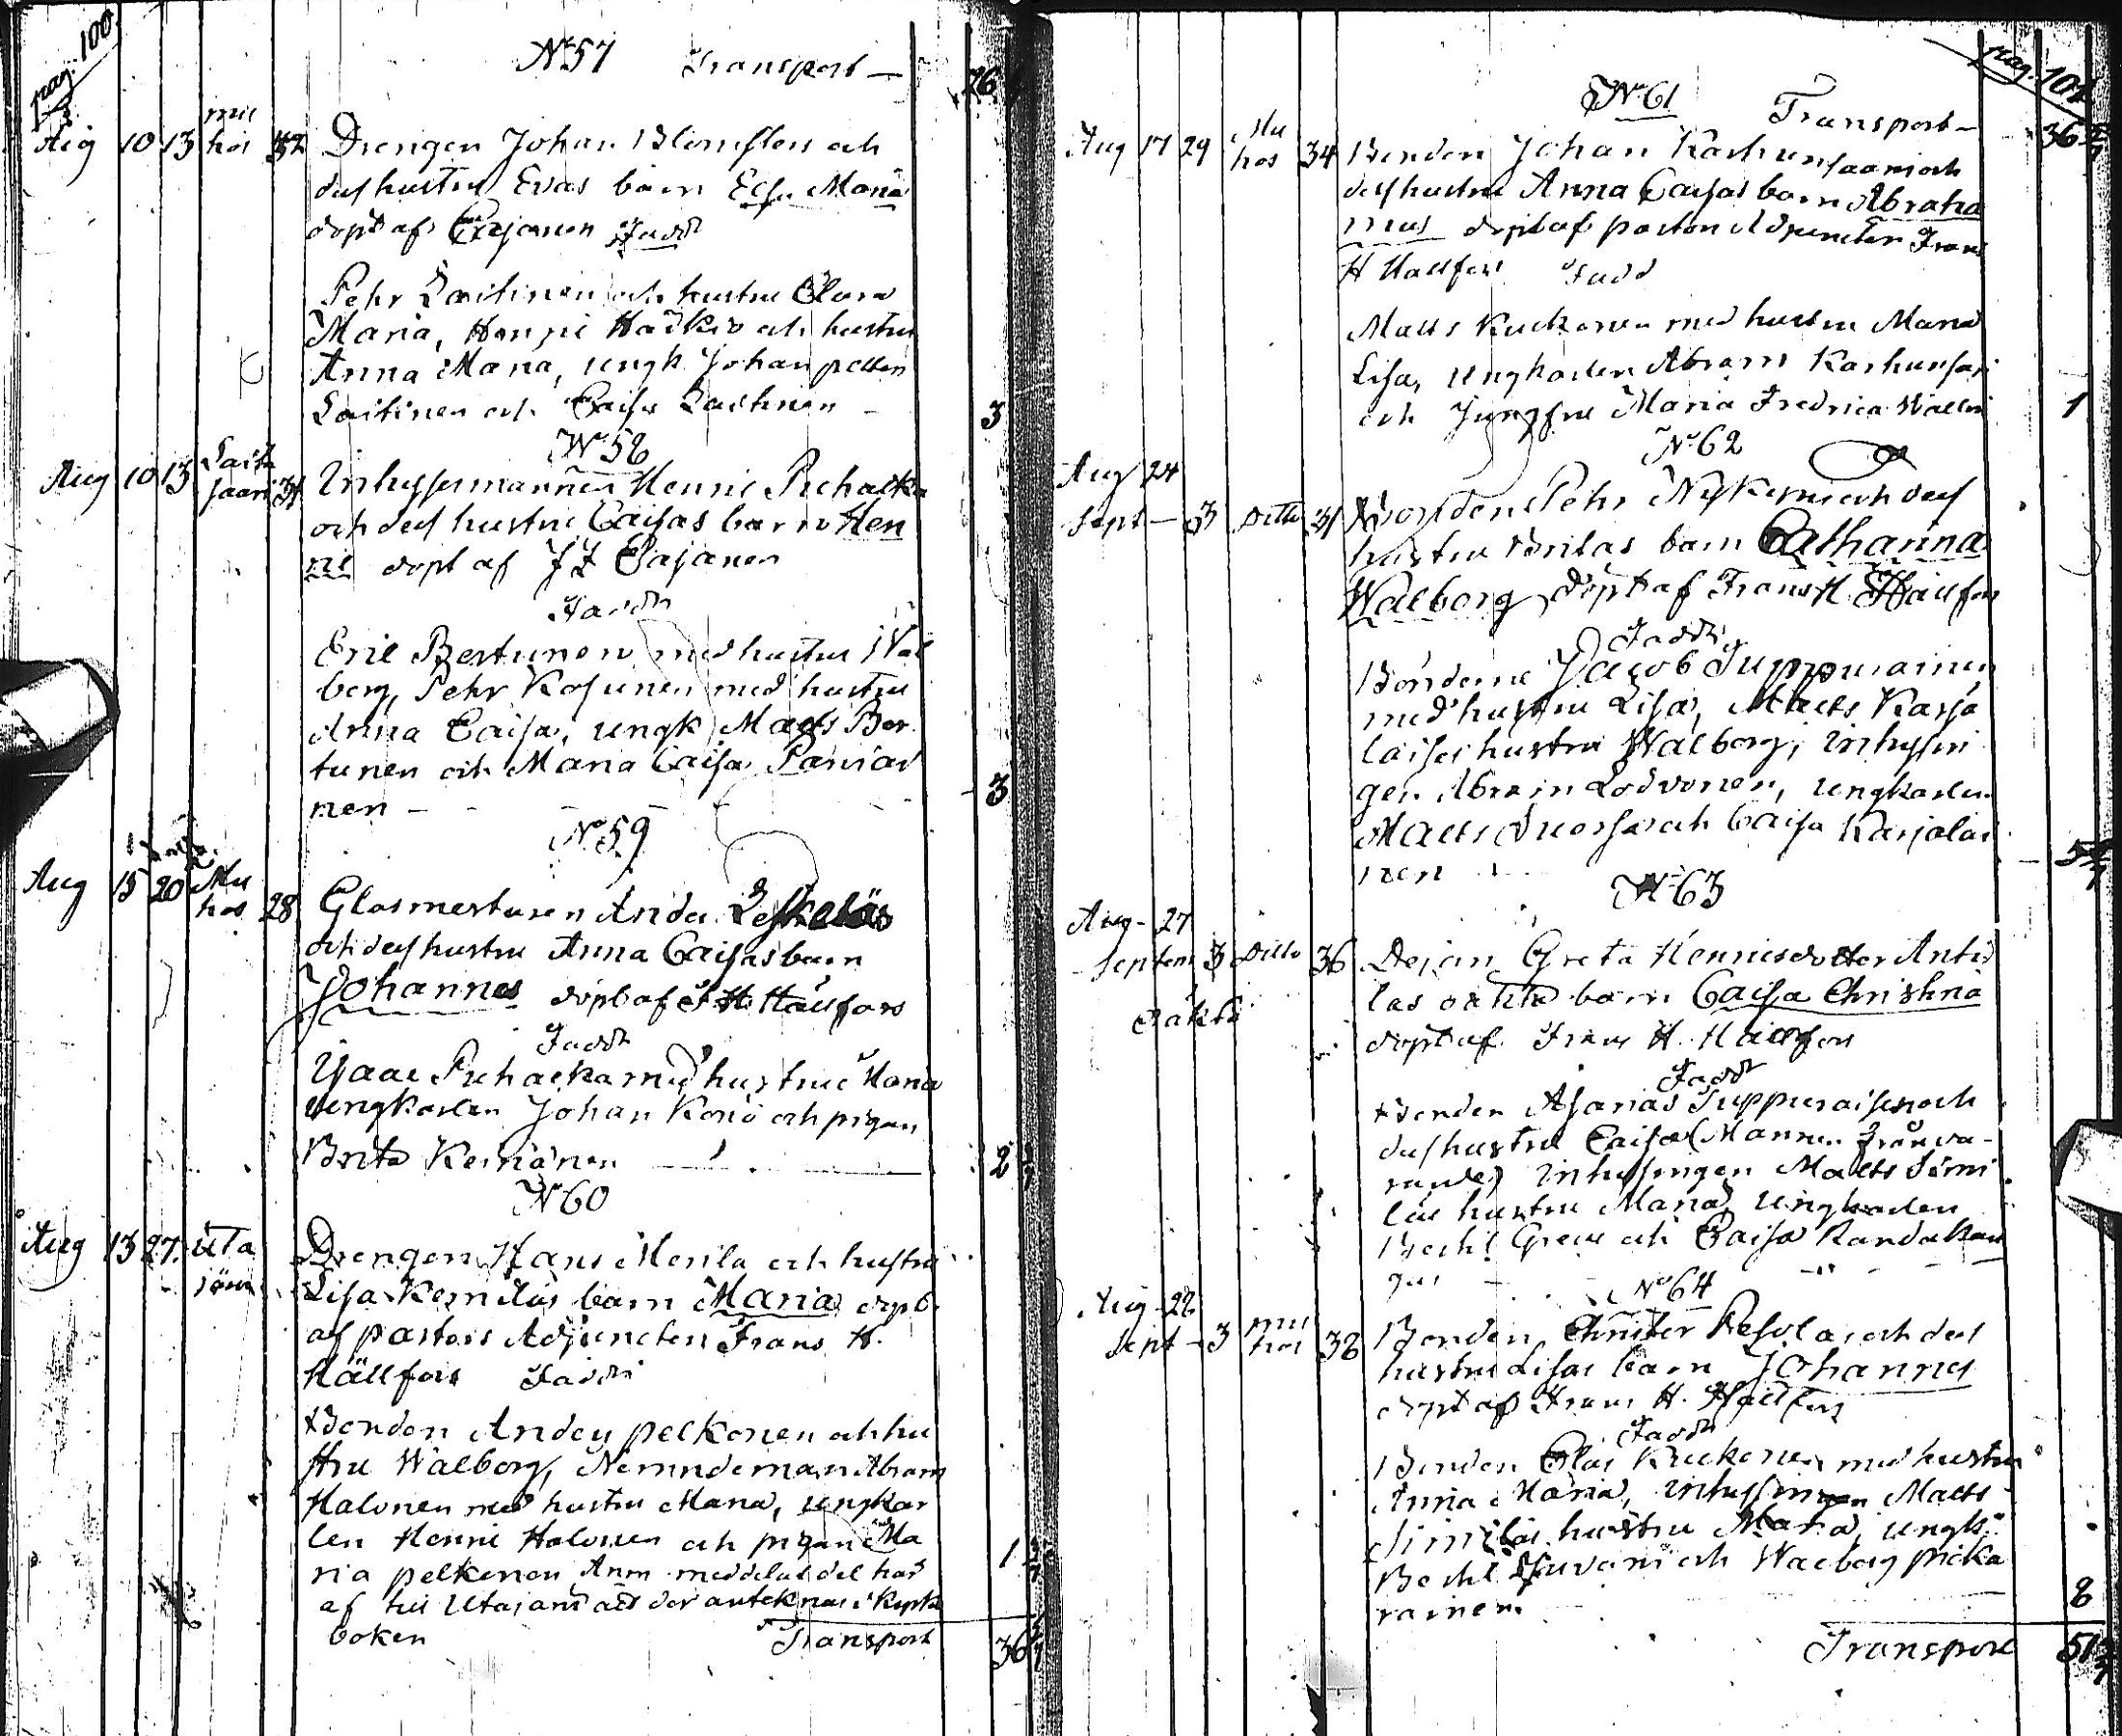 pag. 100.
No 57 Transport —
26
Aug 10 13 Mu
hos 32 Drengen Johan Blomster och
dess hustru Evas barn Elsa Maria
döpt af Cajanen Fadd
Pehr Laitinen och hustru Clara
Maria, Henric Harkio och hustru
Anna Maria, ungk Johan pelttari
Laitinen och Caisa Laitinen — 3
No 58
Aug 10 13 Laita
saari 31 Inhysesmannen Henric Pichacka
och dess hustru Caisas barn Hen
ric döpt af J Z Cajanen
Faddr
Eric Bertunen med hustru Wal
berg, Pehr Kosunen med hustru
Anna Caisa, ungk Matts Ber
tunen och Maria Caisa Paniai
nen — 3
No 59
Aug 15 20 Mu
hos 28 Glasmestaren Anders
och dess hustru Anna Caisas barn
Johannes döpt af F H Hällfors
Faddr
Isaac Pichacka med hustru Maria
ungkarlen Johan Konö och pigan
Brita Keinänen — 2
No 60
Aug 13 27 Uta
järvi Drengen Hans Merila och hustru
Lisa barn Maria döpt
af pastors Adjuncten Frans H.
Hällfors Faddr
Bonden Anders pelkonen och hu
stru Walborg, Nemndeman Abram
Halonen med hustru Maria, ungkar
len Henric Halonen och pigan Ma
ria pelkonen Anm meddelas del har 1
af till Utajärvi att der antecknas i Kyrko
boken Transport 36
pag. 101
No 61
Transport — 36
Aug 17 29 Mu
hos 34 Bonden Johan Karhunsaari och
dess hustru Anna Caisas barn Abraha
mus döpt af pastors Adjuncten Frans
H Hällfors Fadd
Matts Kuckonen med hustru Maria
Lisa, ungkarlen Abram Karhunsari
och Jungfru Maria Fredrica Wallin 1
No 62
Aug 24
Sept — 3 Ditto 31 Bonden Pehr Nykyri och dess
hustru Britas barn Catharina
Walborg döpt af Frans H. Hällfors
Faddr
Bönderne Jacob Suppurainen
med hustru Lisa, Matts Karja
laises hustru Walborg, inhysin
gen Abram Lodvonen, ungkarlen
Matts Suorsa och Caisa Karjalai
nen 5
No 63
Aug — 27
Septem 3 Ditto 36 Dejan Greta Henricsdotter Anti
las oäkta barn Caisa Christina
Oäkta
döpt af Frans H. Hällfors
Faddr
Bonden Asarias Suppuraisen och
dess hustru Caisa (Mannen frånva-
rande) inhysingen Matts Simi
läs hustru Maria, ungkarlen
Bertil Greus och Caisa Randakan
gas
No 64
Aug — 28
Sept — 3 Mu
hos 38 Bonden Christer Resolas och dess
hustru Lisas barn Johannes
döpt af Frans H. Hällfors
Faddr
Bonden Olas Kuckonen med hustru
Anna Maria, inhysingen Matts
Similäs hustru Maria, ungk:
Bertil Juvani och Walborg picka
rainen 8
Transport 51